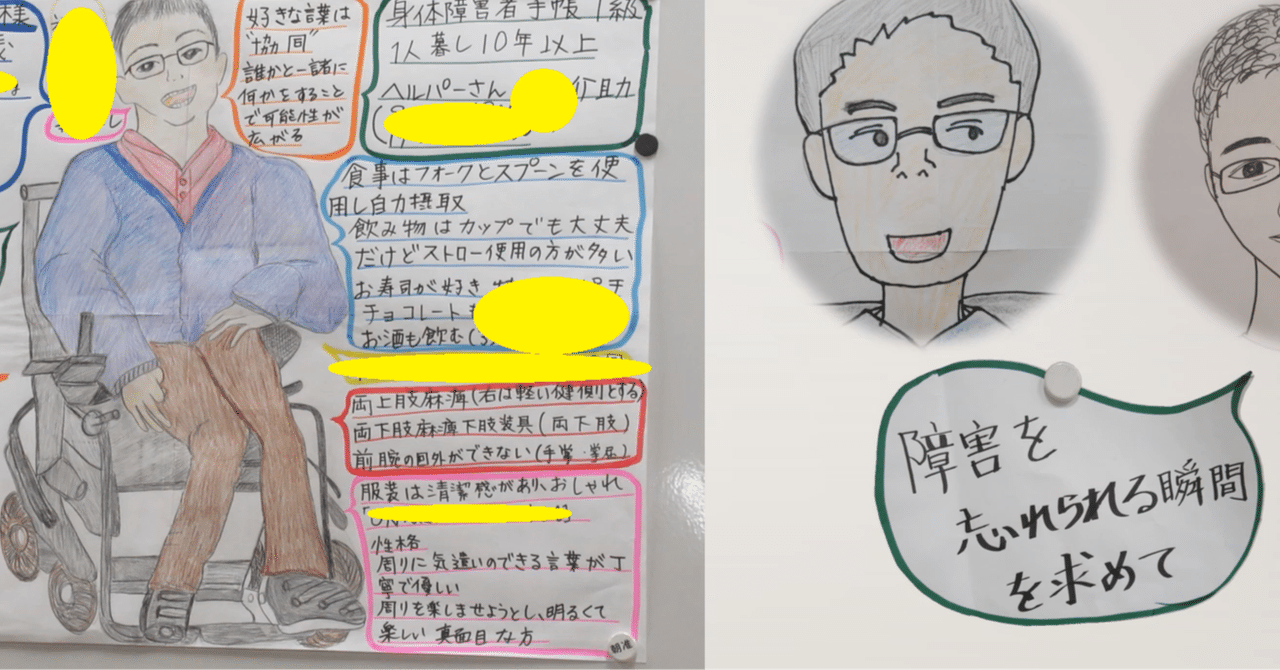 様
好きな言葉は
"協同"
誰かと一諸に
何かをすること
で可能性が
広がる
身体障害者手帳1級
1人暮し10年以上
ヘルパーさん 介助
食事はフォークとスプーンを使
用し自力摂取
飲み物はカップでも大丈夫
だけどストロー使用の方が多い
お寿司が好き
チョコレート
お酒も飲む(
両上肢麻痺(右は軽い健側とする)
両下肢麻痺下肢装具(両下肢)
前腕の回外ができない(手掌・
服装は清潔感があり、おしゃれ
性格
周りに気遣いのできる言葉が丁
寧で優しい
周りを楽しませようとし、明るくて
楽しい 真面目な方
朝准
障害を
忘れられる瞬間
を求めて